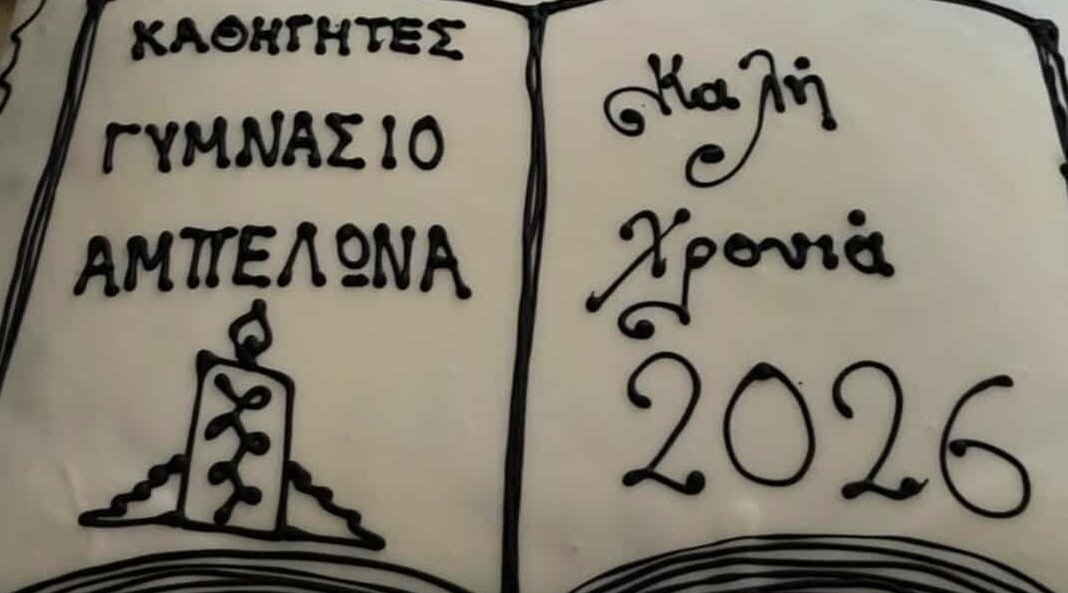 ΚΑΘΗΓΗΤΕΣ
ΓΥΜΝΑΣΙΟ
ΑΜΠΕΛΩΝΑ
Καλή
Χρονιά
2026